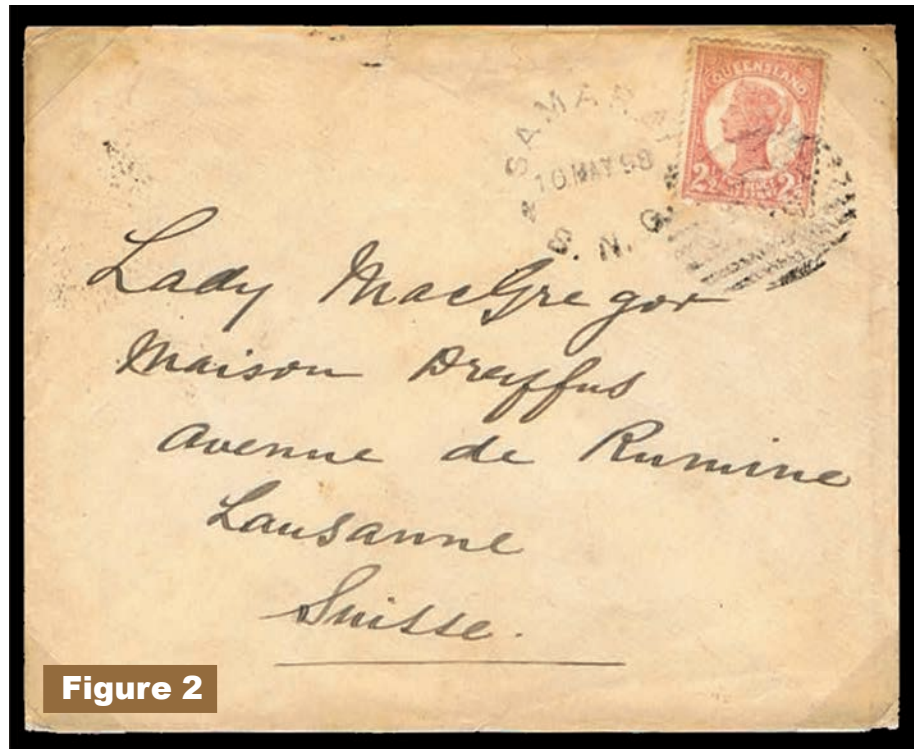 QUEENSLAND
2½ 2½
SAMARAI
10 MAY 98
B. N. G.
Lady MacGregor
Maison Dreyfus
Avenue de Rumine
Lausanne
Suisse.
Figure 2